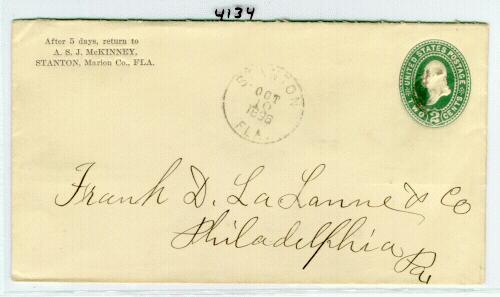 4134
After 5 days, return to
A. S. J. McKINNEY,
STANTON, Marion Co., FLA.
STANTON
OCT
10
1896
FLA.
UNITED STATES POSTAGE
TWO 2 CENTS
Frank D. LaLanne & Co
Philadelphia
Pa